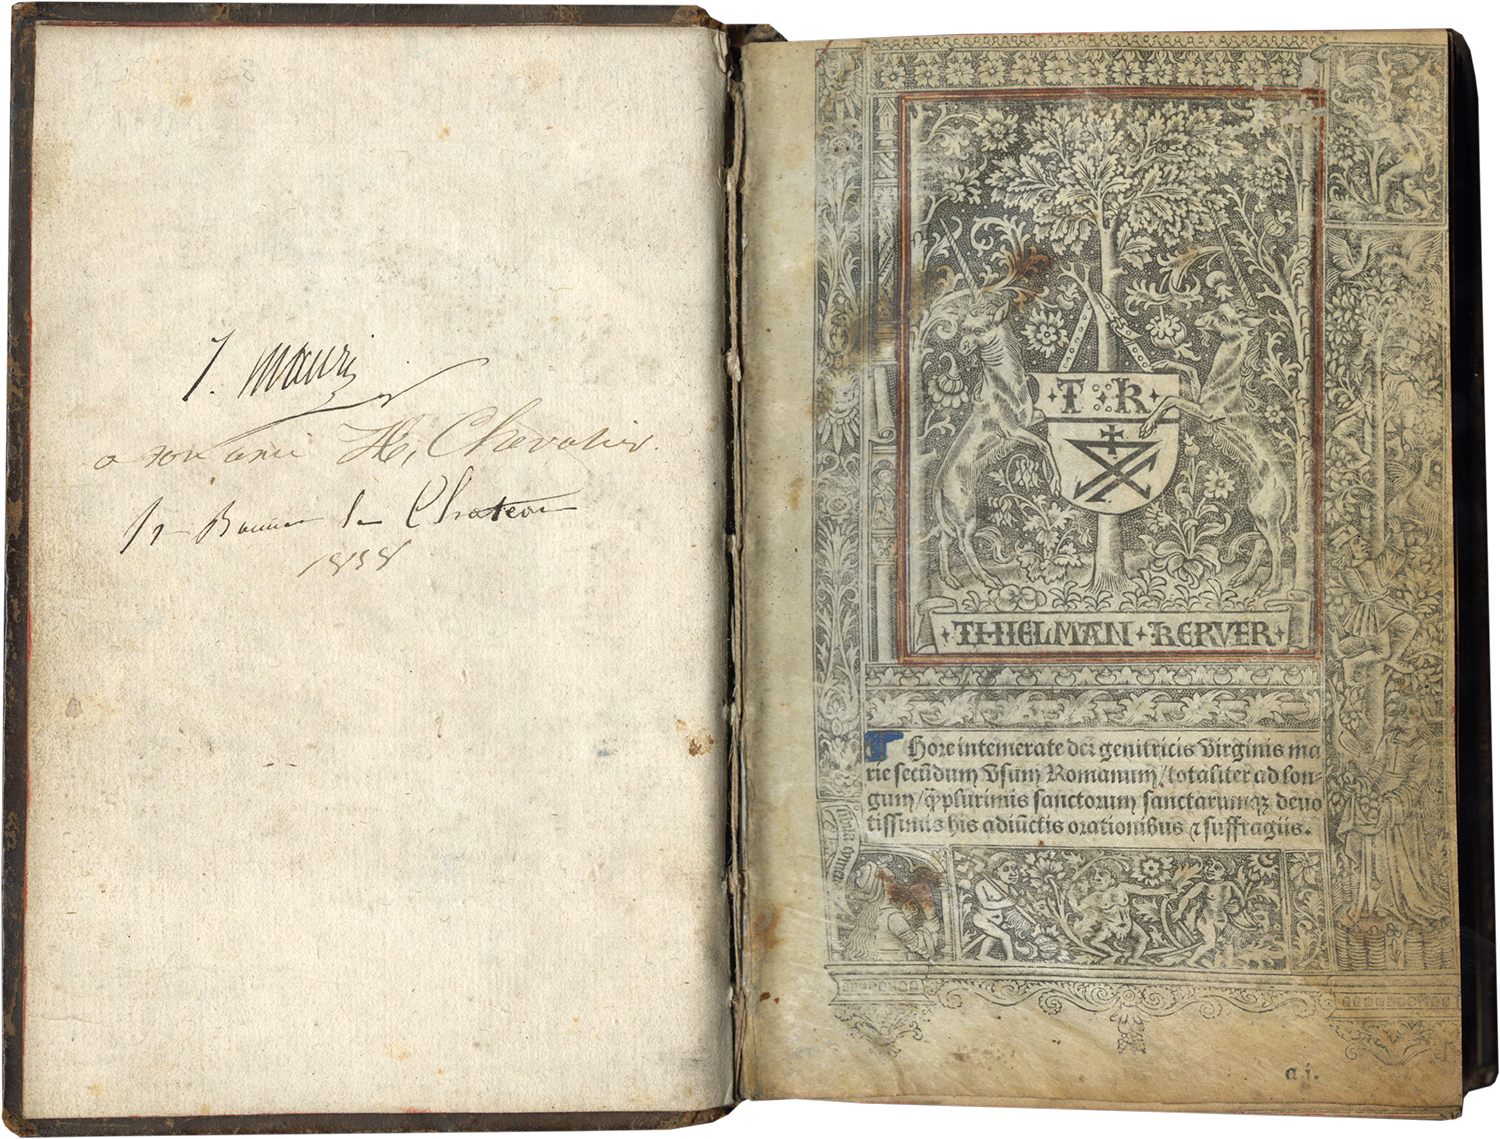 J. Mauri
a son ami H, Chevalier.
le Chateau
1858
·T·R·
·THIELMAN·KERVER·
Hore intemerate dei genitricis Virginis ma
rie secūdum Vsum Romanum/totaliter ad lon-
gum/q̄ plurimis sanctorum sanctarumqꝫ deuo
tissimis his adiūctis orationibus ⁊ suffragiis.
a j.